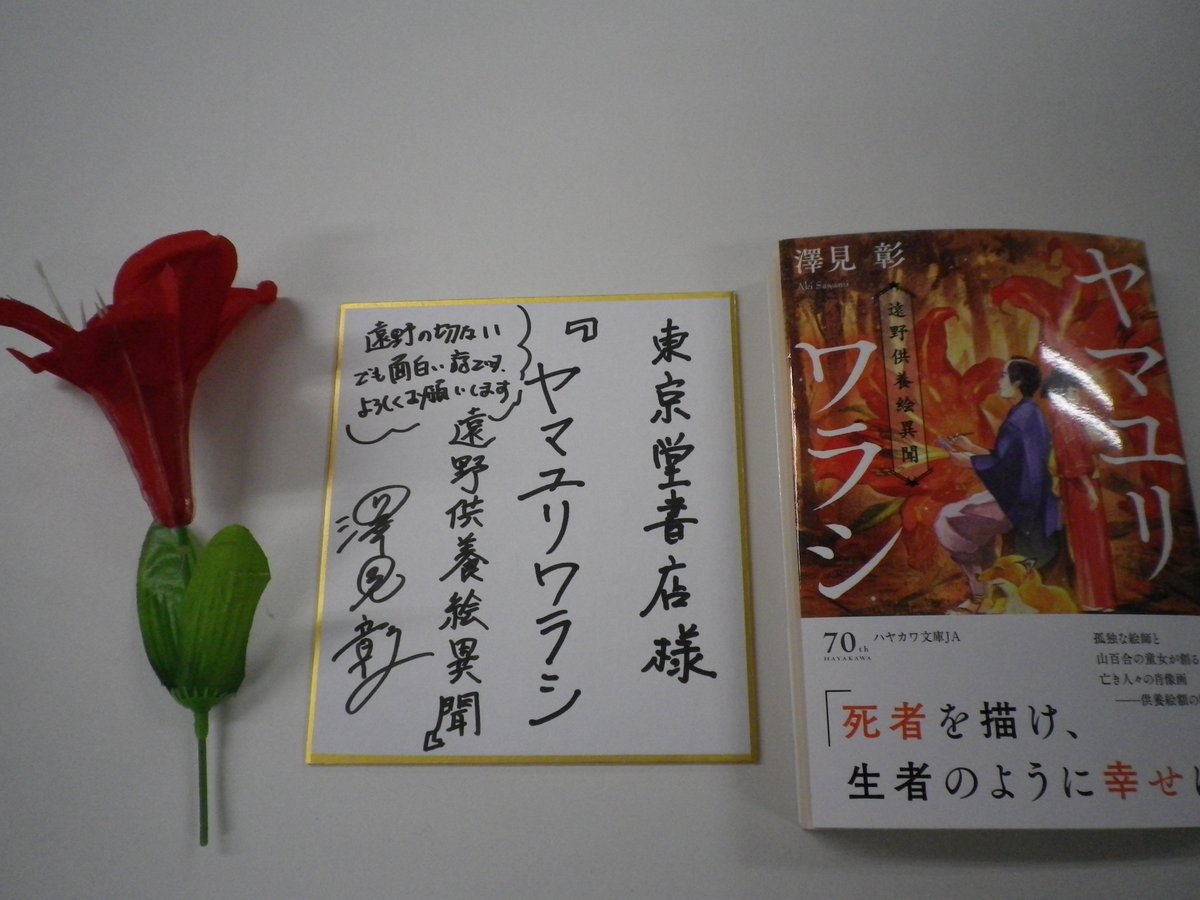 東京堂書店様
『ヤマユリワラシ
遠野供養絵異聞』
遠野の切ない
でも面白い話です、
よろしくお願いします
澤見彰
澤見 彰
Aki Sawami
ヤマユリ
ワラシ
遠野供養絵異聞
70th
HAYAKAWA
ハヤカワ文庫JA
孤独な絵師と
山百合の童女が創る
亡き人々の肖像画
──供養絵額の
「死者を描け、
生者のように幸せ